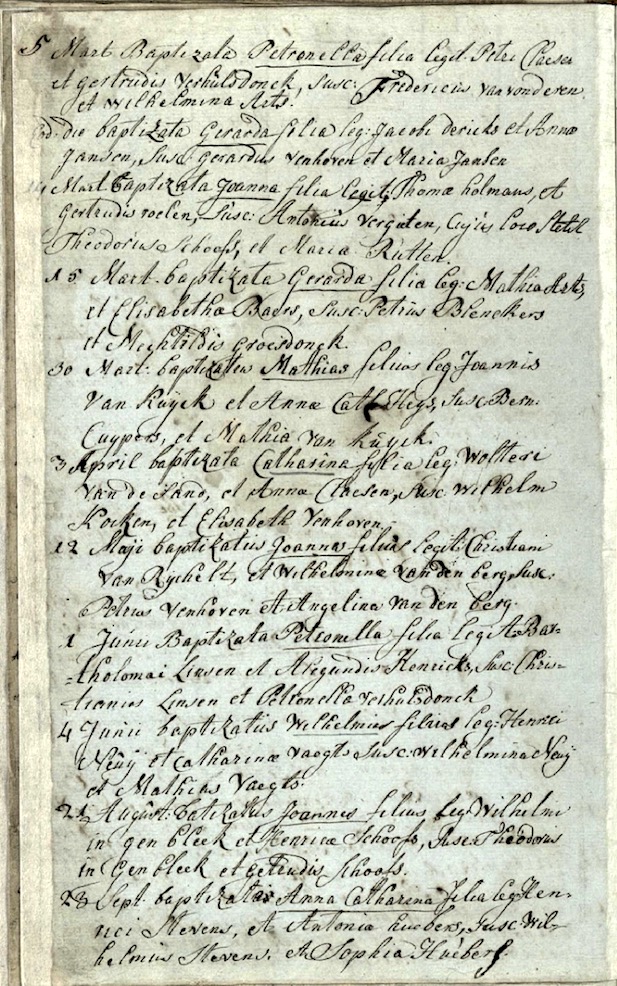 5 Mart Baptizata Petronella filia legit: Petri Claesen
et gertrudis Verhulsdonck, Susc: Fredericus van vonderen
et Wilhelmina Arts.
Eod: die baptizata Gerarda filia leg: Jacobi dericks et Annæ
Jansen, Susc: gerardus Venhoven et Maria Jansen
14 Mart. baptizata Joanna filia legit: Thomæ holmans, et
Gertrudis roelen, Susc: Antonius Verguten, Cujus loco stetit
Theodorus Schoofs, et Maria Rutten.
15 Mart. baptizata Gerarda filia leg: Mathiæ Arts,
et Elisabetha Baers, Susc: Petrus Blenckers
et Mechtildis Groesdonck.
30 Mart: baptizatus Mathias filius leg: Joannis
Van Kuyck et Annæ Cath: Heys, Susc: Bern:
Cuypers, et Mathia Van Kuyck.
3 April baptizata Catharina filia leg: Wolteri
Van de Sand, et Annæ Claesen, Susc Wilhelm
Kocken, et Elisabeth Venhoven.
12 Maji baptizatus Joannes filius legit: Christiani
Van Rychelt, et Wilhelminæ van den berg, Susc:
Petrus Venhoven et Angelina van den berg.
1 Junii Baptizata Petronella filia legit: Bar-
-tholomæi Linsen et Aregundis Henricks, Susc: Chris-
tianus Linsen et Petronella Verhulsdonck
4 Junii baptizatus Wilhelmus filius leg: Henrici
Neuy et Catharinæ Vaegts Susc: Wilhelmina Neuy
et Mathias Vaegts.
August: batizatus Joannes filius leg: Wilhelmi
in gen bleek et Henricæ Schoofs, Susc: Theodorus
in Gen bleek et getrudis Schoofs.
28 Sept. baptizata Anna Catharina filia leg: Hen-
rici Stevens, et Antonia huebers, Susc: Wil-
helmus Stevens. et Sophia Huebers.